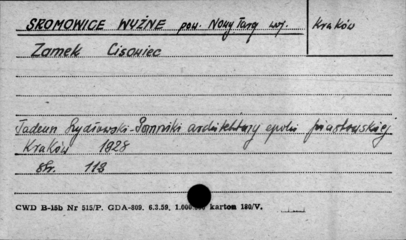 SROMOWICE WYŻNE pow. Nowy Targ woj. Kraków
Zamek Cisowiec
Tadeusz Szydłowski - Pomniki architektury epoki piastowskiej
Kraków 1928
str. 118
CWD B-15b Nr 515/P. GDA-809. 6.3.59. 1.000.000 karton 180/V.